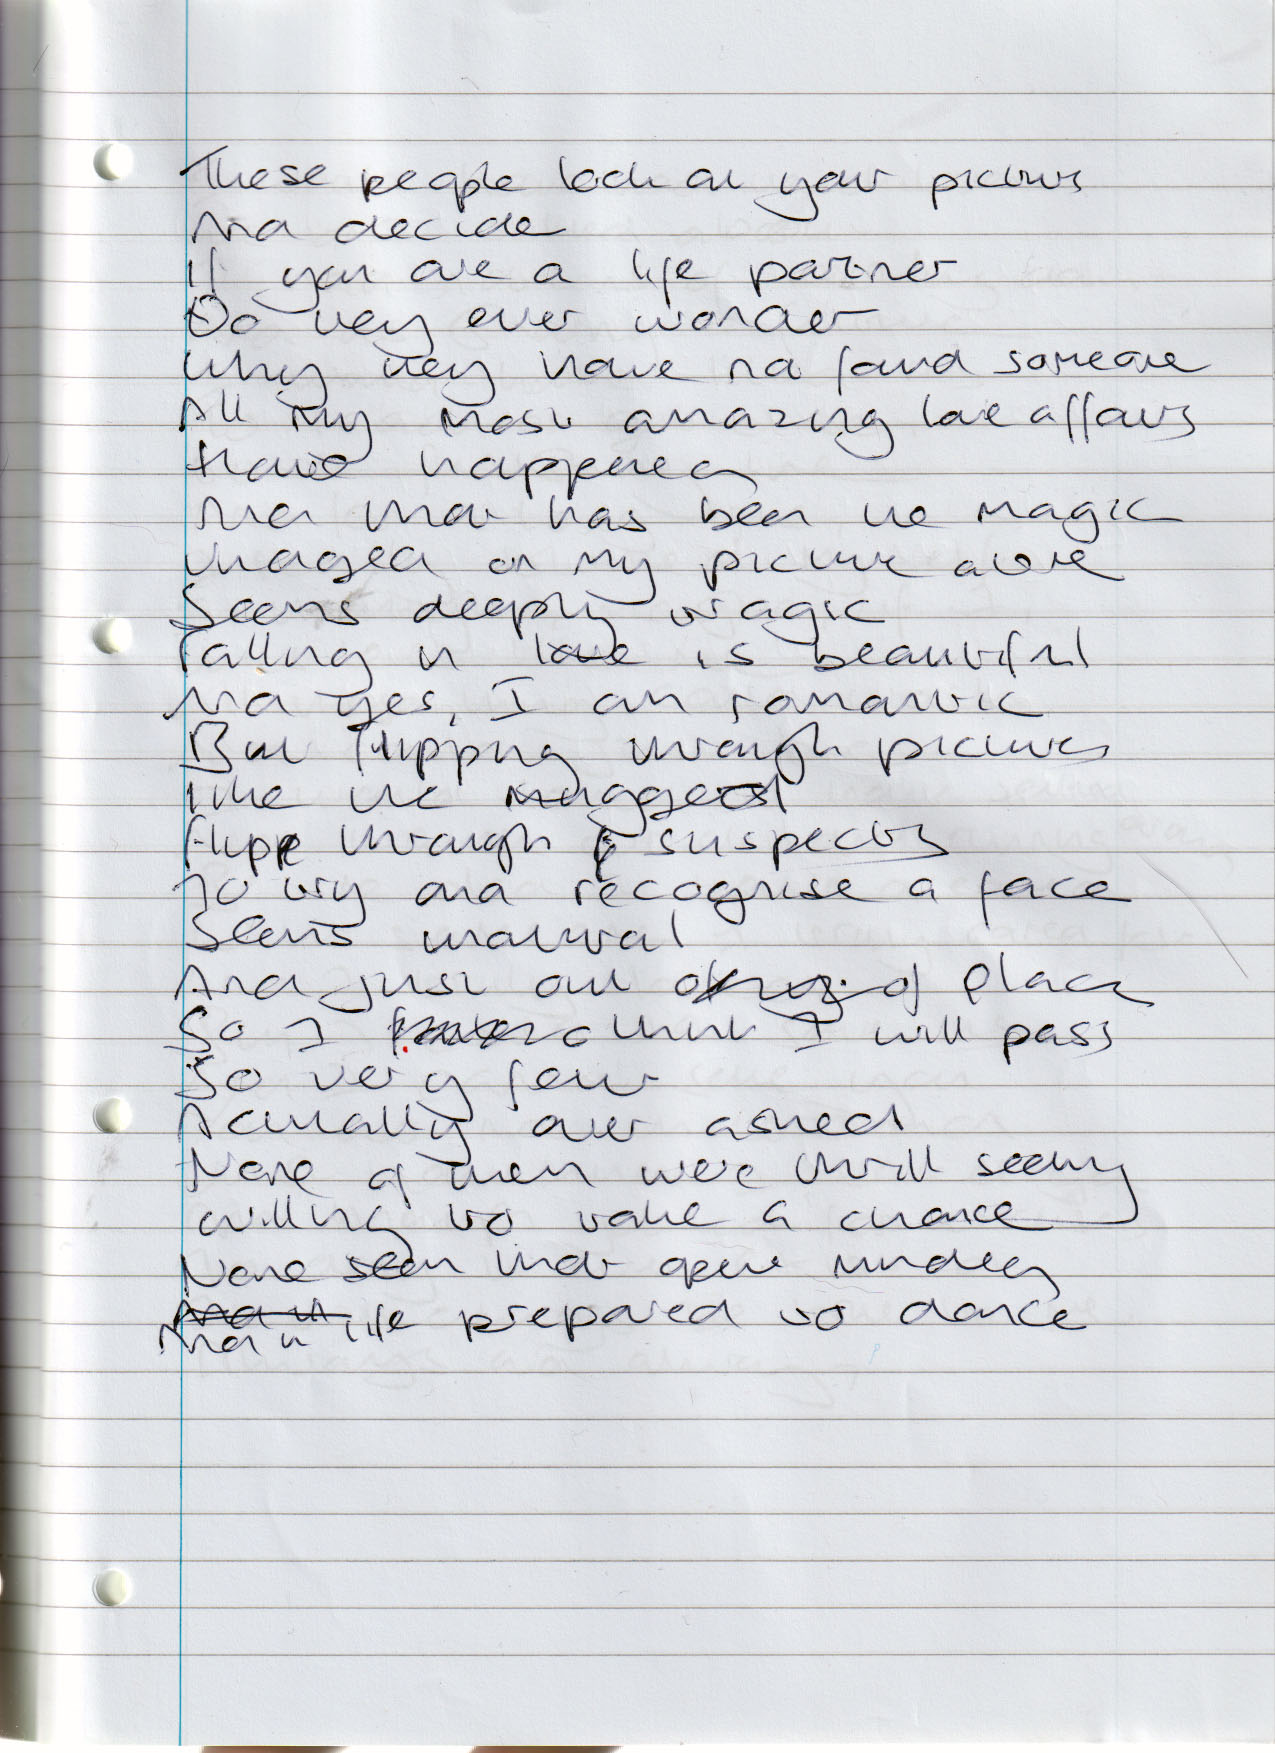 These people look at your pictures
And decide
If you are a life partner
Do they ever wonder
Why they have not found someone
All my most amazing love affairs
Have happened
And that has been the magic
on my picture alone
Seems deeply tragic
Falling in love is beautiful
And yes, I am romantic
But flipping through pictures
like the mugged
Flipp through suspects
To try and recognise a face
Seems unnatural
And just out of place
So I think I will pass
So very few
Actually ever asked
None of them were thrill seeking
willing to take a chance
None seem that open minded
And in life prepared to dance